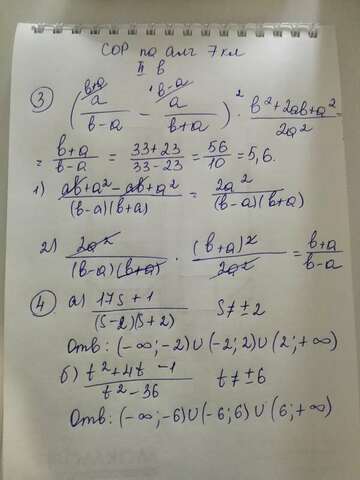 СОР по алг 7 кл
II в
③ (a/(в-a) ^(в+a) - a/(в+a) ^(в-a))² · (в²+2aв+a²)/(2a²) =
= (в+a)/(в-a) = (33+23)/(33-23) = 56/10 = 5,6.
1) (aв+a²-aв+a²)/((в-a)(в+a)) = 2a²/((в-a)(в+a))
2) 2a²/((в-a)(в+a)) · (в+a)²/(2a²) = (в+a)/(в-a)
④ а) (17S+1)/((S-2)(S+2)) S≠±2
Отв: (-∞;-2)∪(-2;2)∪(2;+∞)
б) (t²+4t-1)/(t²-36) t≠±6
Отв: (-∞;-6)∪(-6;6)∪(6;+∞)